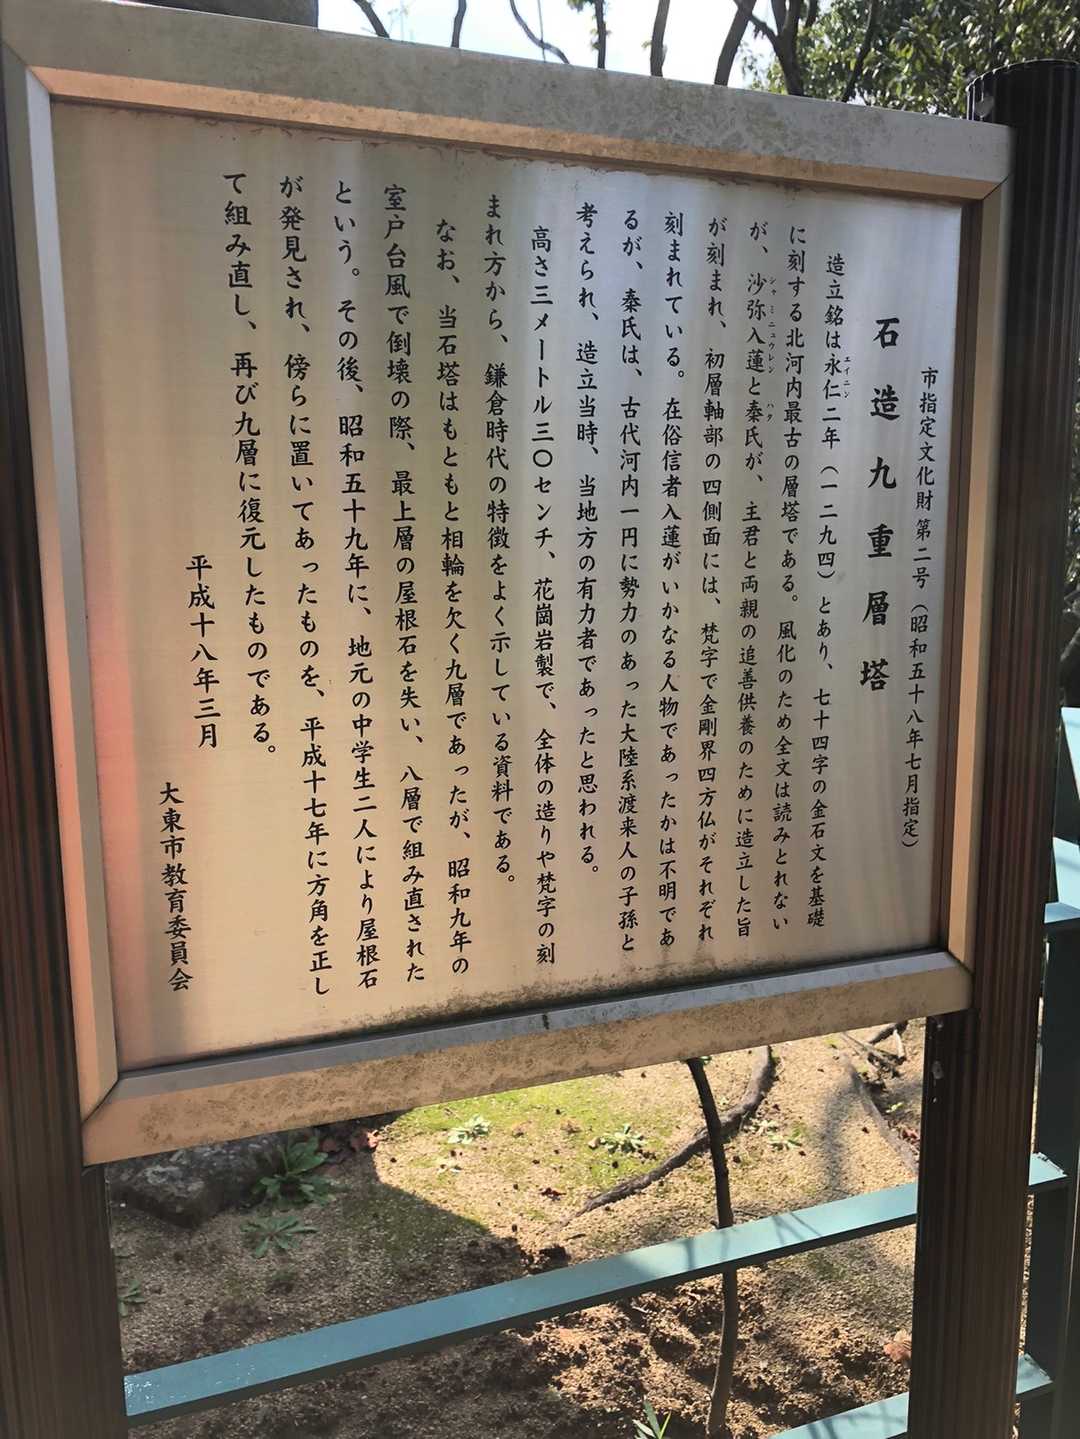 市指定文化財第二号(昭和五十八年七月指定)
石造九重層塔
造立銘は永仁二年(一二九四)とあり、七十四字の金石文を基礎
エイニン
に刻する北河内最古の層塔である。風化のため全文は読みとれない
が、沙弥入蓮と秦氏が、主君と両親の追善供養のために造立した旨
シャミニュウレン
ハタ
が刻まれ、初層軸部の四側面には、梵字で金剛界四方仏がそれぞれ
刻まれている。在俗信者入蓮がいかなる人物であったかは不明であ
るが、秦氏は、古代河内一円に勢力のあった大陸系渡来人の子孫と
考えられ、造立当時、当地方の有力者であったと思われる。
高さ三メートル三〇センチ、花崗岩製で、全体の造りや梵字の刻
まれ方から、鎌倉時代の特徴をよく示している資料である。
なお、当石塔はもともと相輪を欠く九層であったが、昭和九年の
室戸台風で倒壊の際、最上層の屋根石を失い、八層で組み直された
という。その後、昭和五十九年に、地元の中学生二人により屋根石
が発見され、傍らに置いてあったものを、平成十七年に方角を正し
て組み直し、再び九層に復元したものである。
平成十八年三月
大東市教育委員会